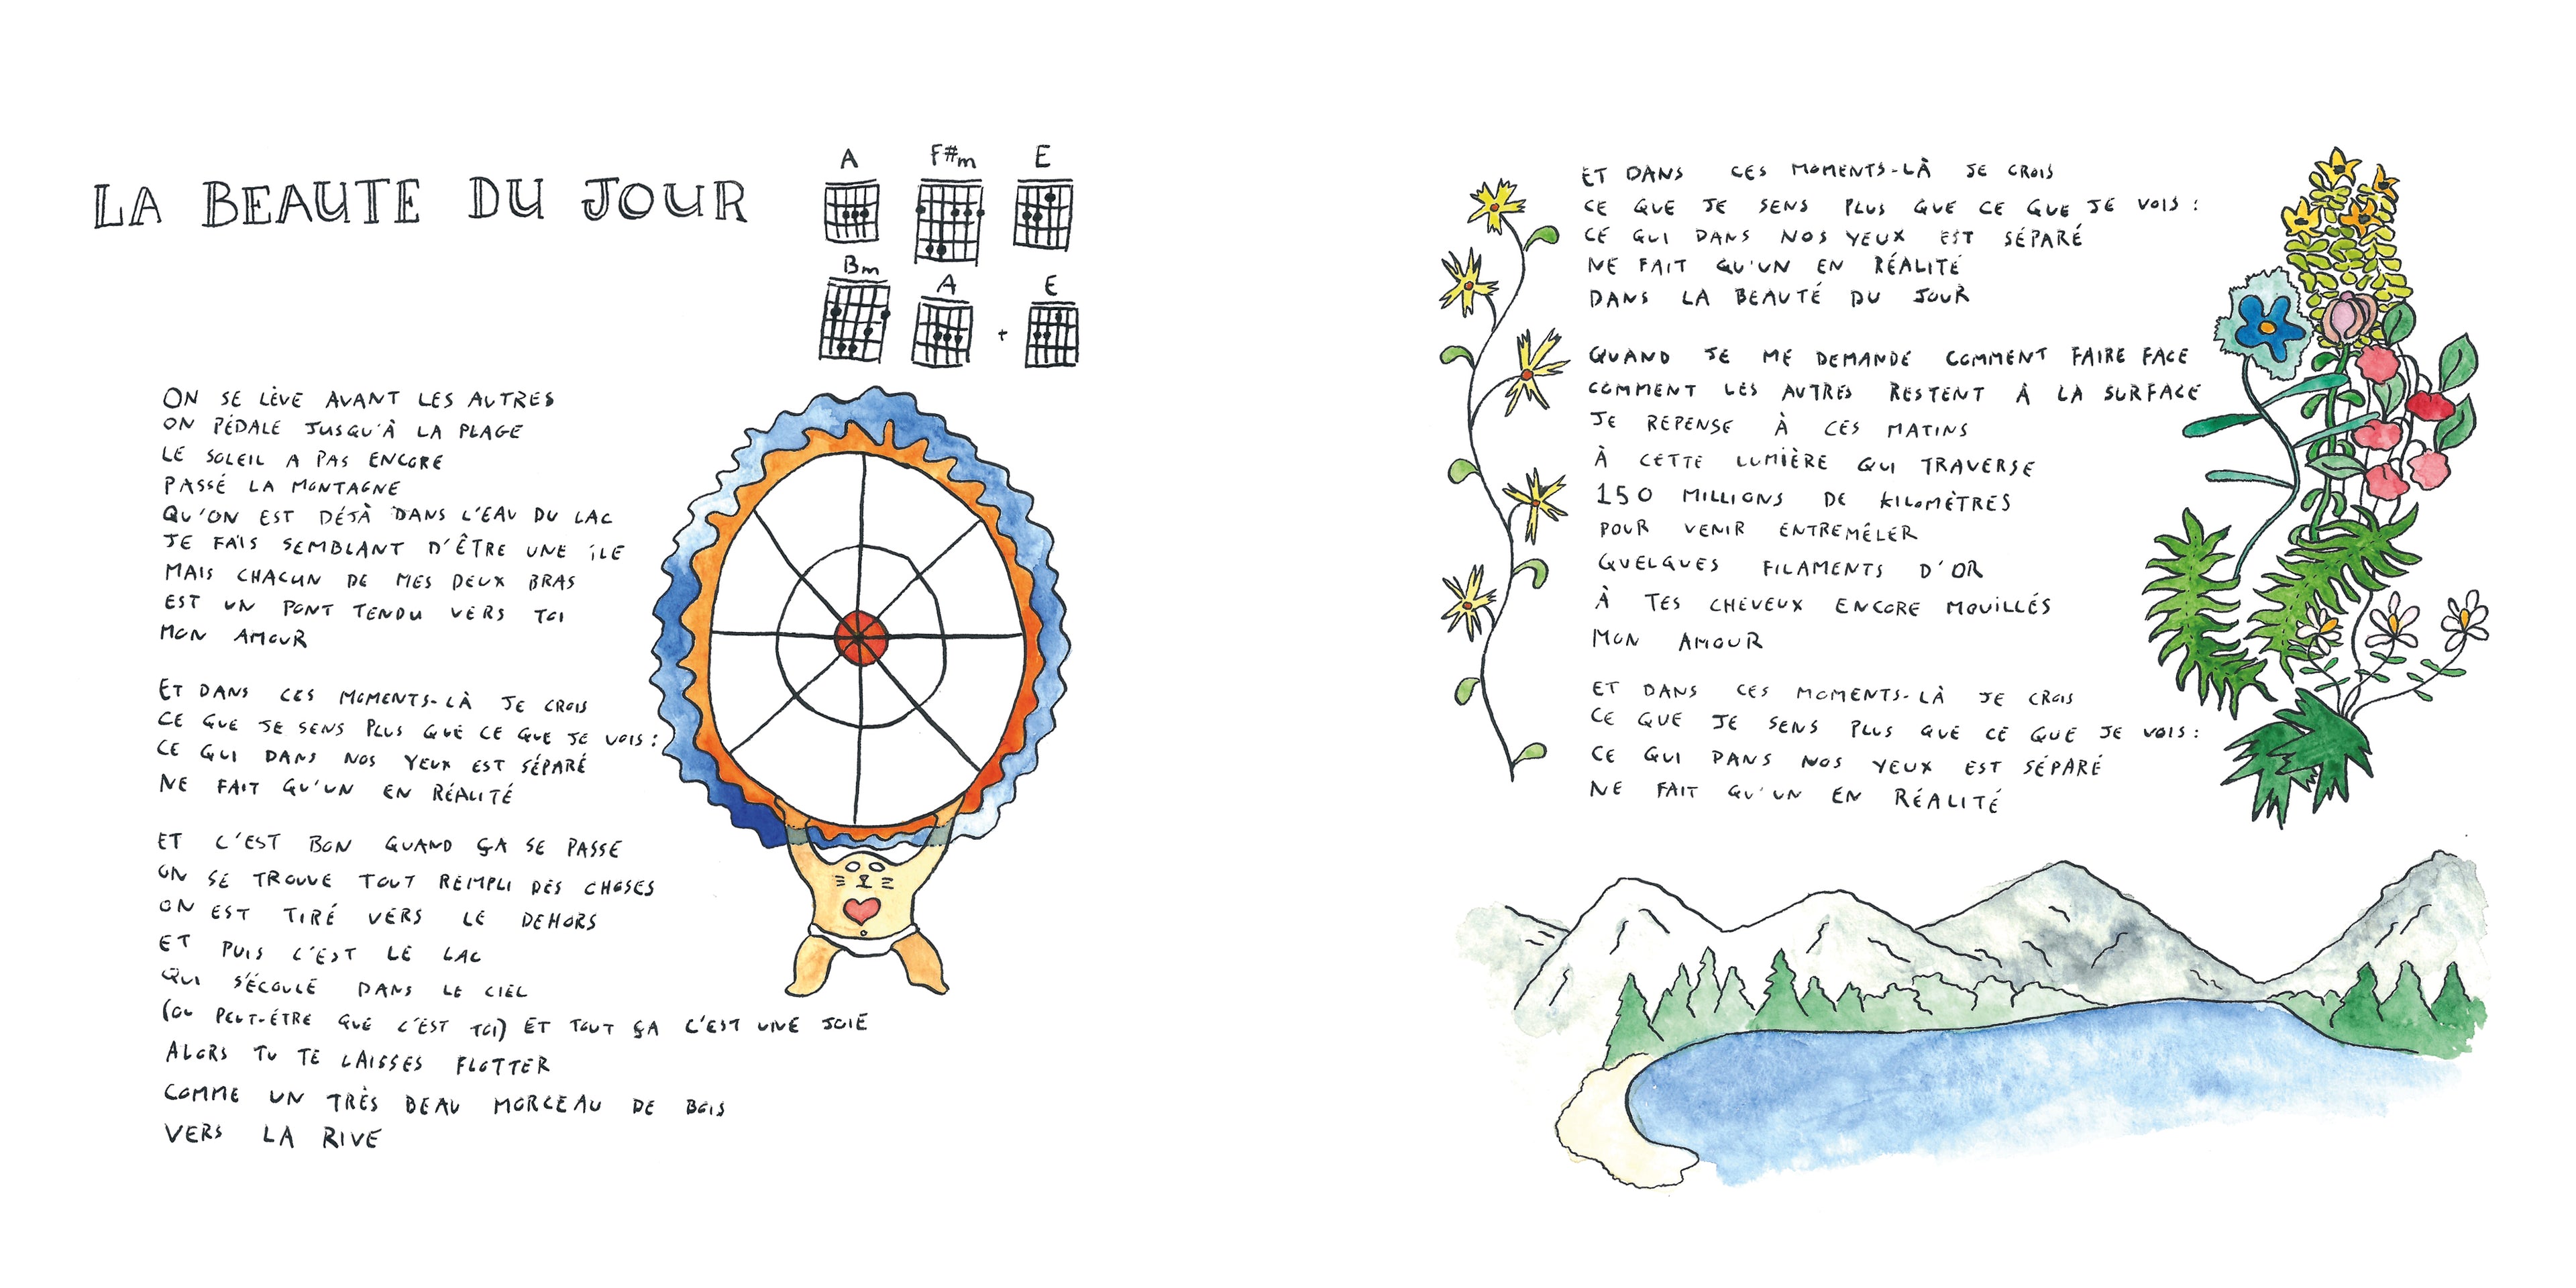 LA BEAUTE DU JOUR
A F#m E
Bm A + E
ON SE LÈVE AVANT LES AUTRES
ON PÉDALE JUSQU'À LA PLAGE
LE SOLEIL A PAS ENCORE
PASSÉ LA MONTAGNE
QU'ON EST DÉJÀ DANS L'EAU DU LAC
JE FAIS SEMBLANT D'ÊTRE UNE ÎLE
MAIS CHACUN DE MES DEUX BRAS
EST UN PONT TENDU VERS TOI
MON AMOUR
ET DANS CES MOMENTS-LÀ JE CROIS
CE QUE JE SENS PLUS QUE CE QUE JE VOIS :
CE QUI DANS NOS YEUX EST SÉPARÉ
NE FAIT QU'UN EN RÉALITÉ
ET C'EST BON QUAND ÇA SE PASSE
ON SE TROUVE TOUT REMPLI DES CHOSES
ON EST TIRÉ VERS LE DEHORS
ET PUIS C'EST LE LAC
QUI S'ÉCOULE DANS LE CIEL
(OU PEUT-ÊTRE QUE C'EST TOI) ET TOUT ÇA C'EST UNE JOIE
ALORS TU TE LAISSES FLOTTER
COMME UN TRÈS BEAU MORCEAU DE BOIS
VERS LA RIVE
ET DANS CES MOMENTS-LÀ JE CROIS
CE QUE JE SENS PLUS QUE CE QUE JE VOIS :
CE QUI DANS NOS YEUX EST SÉPARÉ
NE FAIT QU'UN EN RÉALITÉ
DANS LA BEAUTÉ DU JOUR
QUAND JE ME DEMANDE COMMENT FAIRE FACE
COMMENT LES AUTRES RESTENT À LA SURFACE
JE REPENSE À CES MATINS
À CETTE LUMIÈRE QUI TRAVERSE
150 MILLIONS DE KILOMÈTRES
POUR VENIR ENTREMÊLER
QUELQUES FILAMENTS D'OR
À TES CHEVEUX ENCORE MOUILLÉS
MON AMOUR
ET DANS CES MOMENTS-LÀ JE CROIS
CE QUE JE SENS PLUS QUE CE QUE JE VOIS :
CE QUI DANS NOS YEUX EST SÉPARÉ
NE FAIT QU'UN EN RÉALITÉ